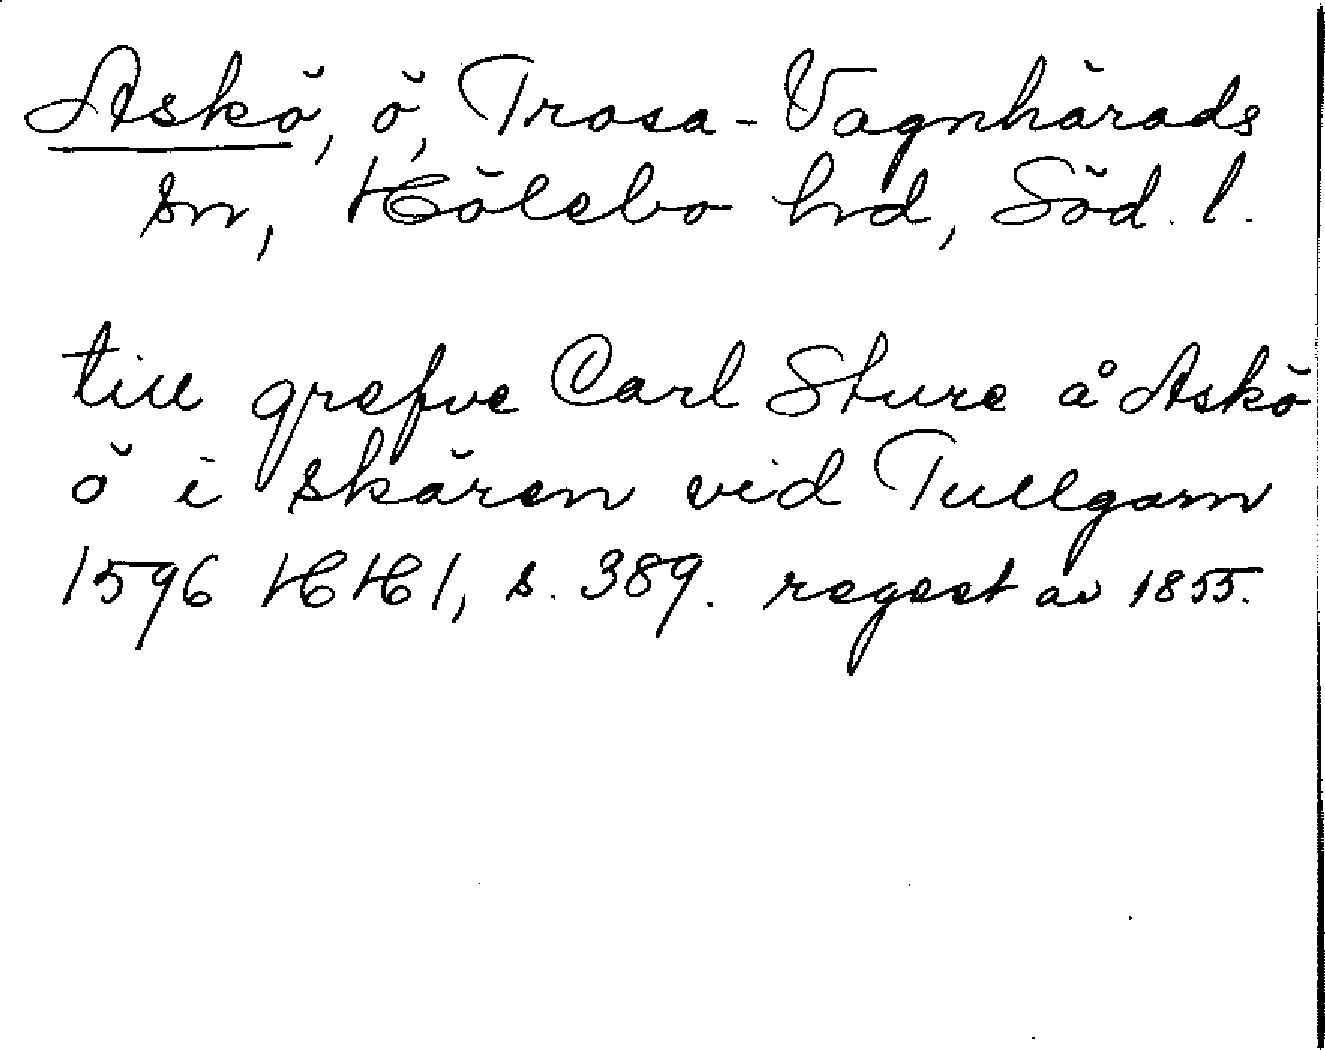 Askö, ö, Trosa-Vagnhärads
sn, Hölebo hd, Söd. l.
till grefve Carl Sture å Askö
ö i skären vid Tullgarn
1596 HH 1, s. 389. regest av 1855.